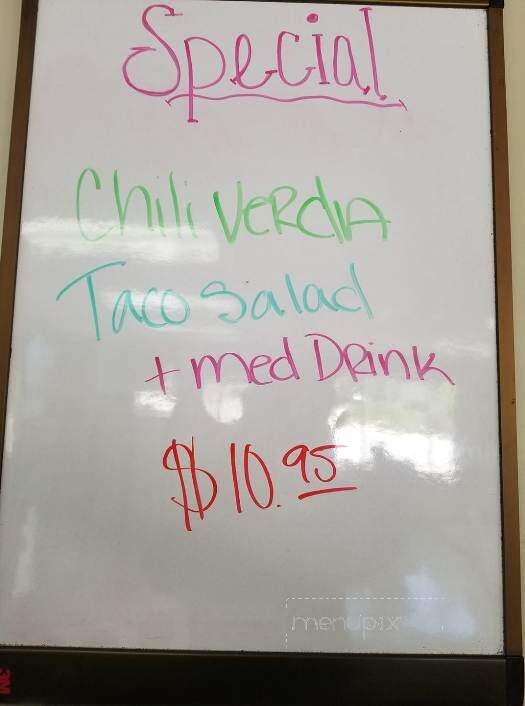 Special
Chili VeRdIA
Taco Salad
+ med DRink
$10.95
menupix
3M